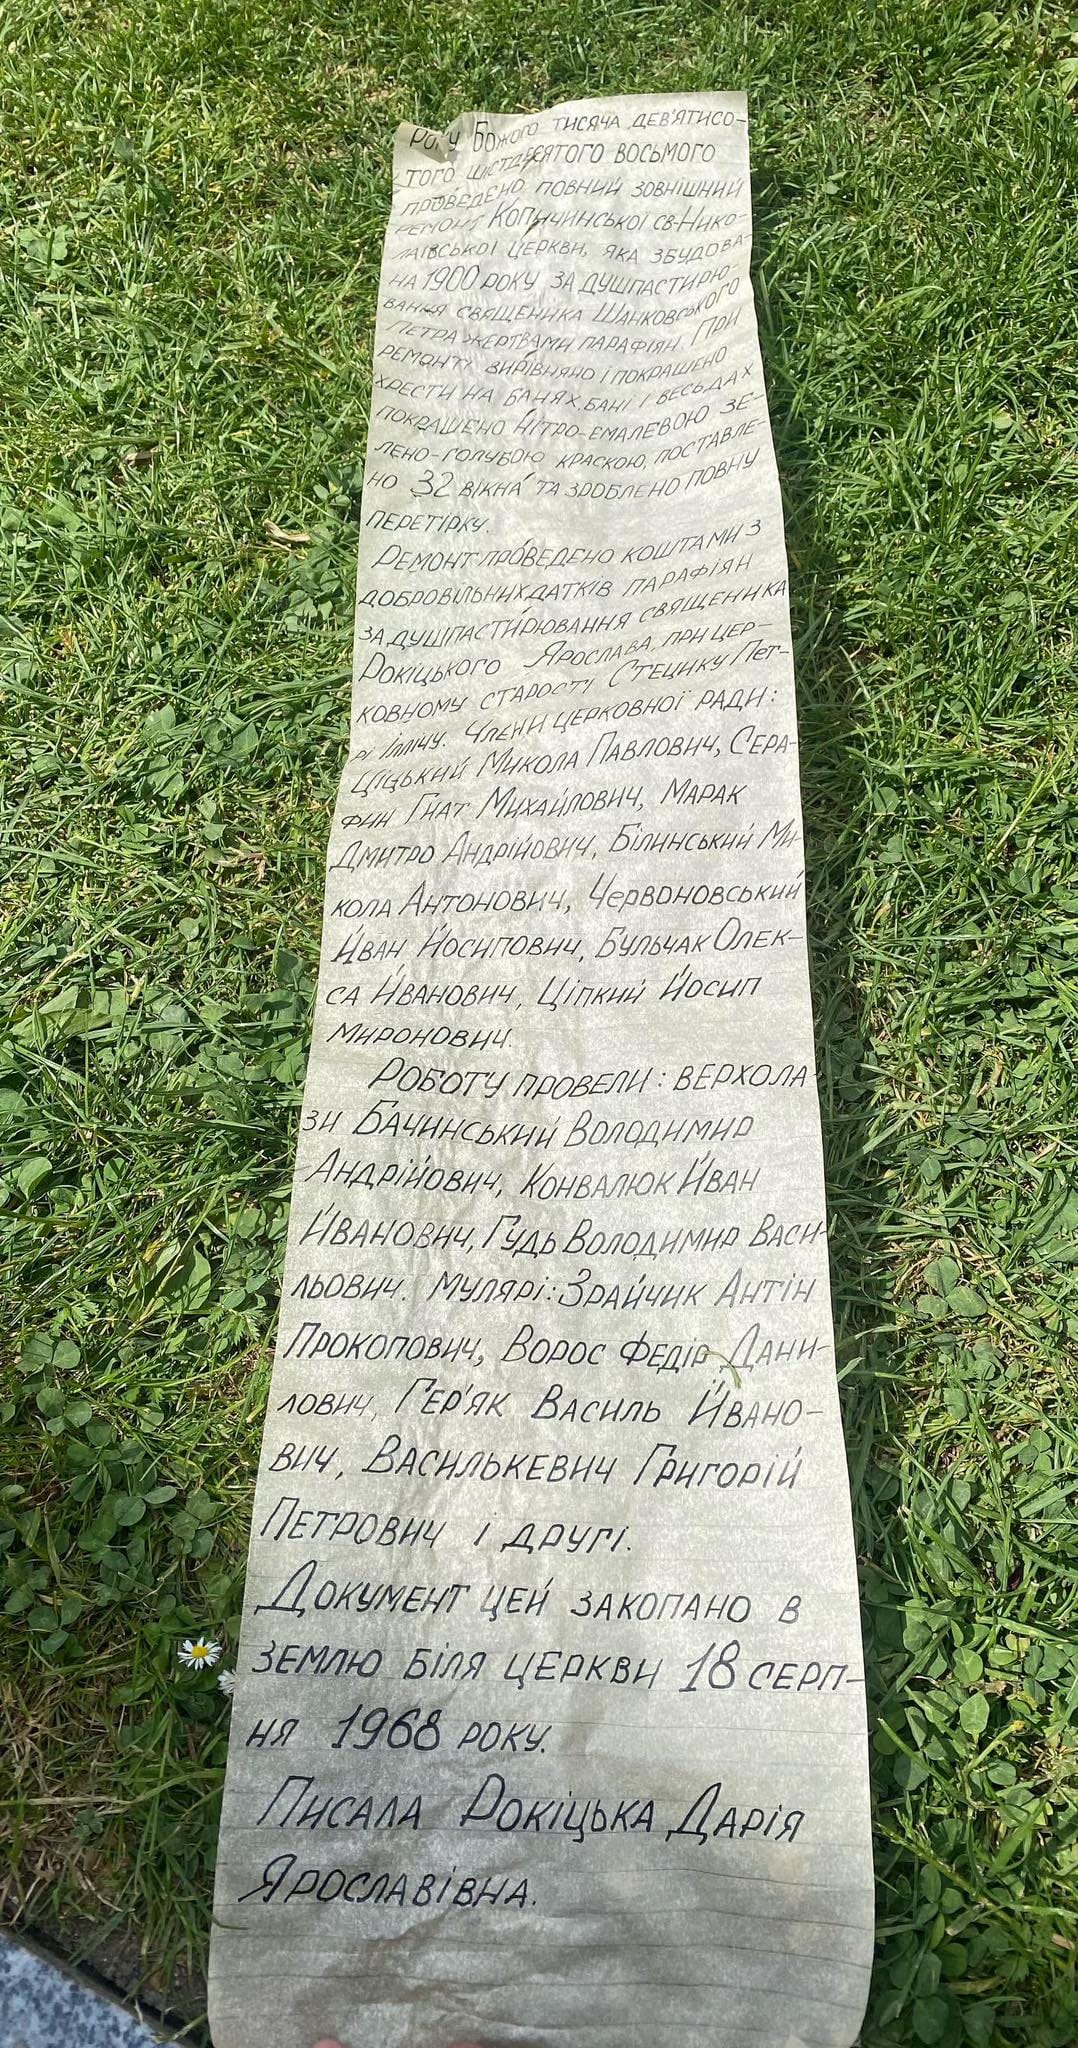 Року Божого тисяча дев'ятисо-
того шістдесятого восьмого
проведено повний зовнішний
ремонт Копичинської св-Нико-
лаївської церкви, яка збудова-
на 1900 року за душпастирю-
вання священика Шанковського
Петра жертвами парафіян. При
ремонті вирівняно і покрашено
хрести на банях, бані і весь дах
покрашено нітро-емалевою зе-
лено-голубою краскою, поставле-
но 32 вікна та зроблено повну
перетірку.
Ремонт проведено коштами з
добровільних датків парафіян
за душпастирювання священика
Рокіцького Ярослава, при цер-
ковному старості Стецику Пет-
рі Іллічу. Члени церковної ради:
Цізький Микола Павлович, Сера-
фин Гнат Михайлович, Марак
Дмитро Андрійович, Білинський Ми-
кола Антонович, Червоновський
Йван Йосипович, Бульчак Олек-
са Йванович, Ціпкий Йосип
Миронович.
Роботу провели: верхола-
зи Бачинський Володимир
Андрійович, Конвалюк Йван
Йванович, Гудь Володимир Васи-
льович. Мулярі: Зрайчик Антін
Прокопович, Ворос Федір Дани-
лович, Гер'як Василь Йвано-
вич, Василькевич Григорій
Петрович і другі.
Документ цей закопано в
землю біля церкви 18 серп-
ня 1968 року.
Писала Рокіцька Дарія
Ярославівна.